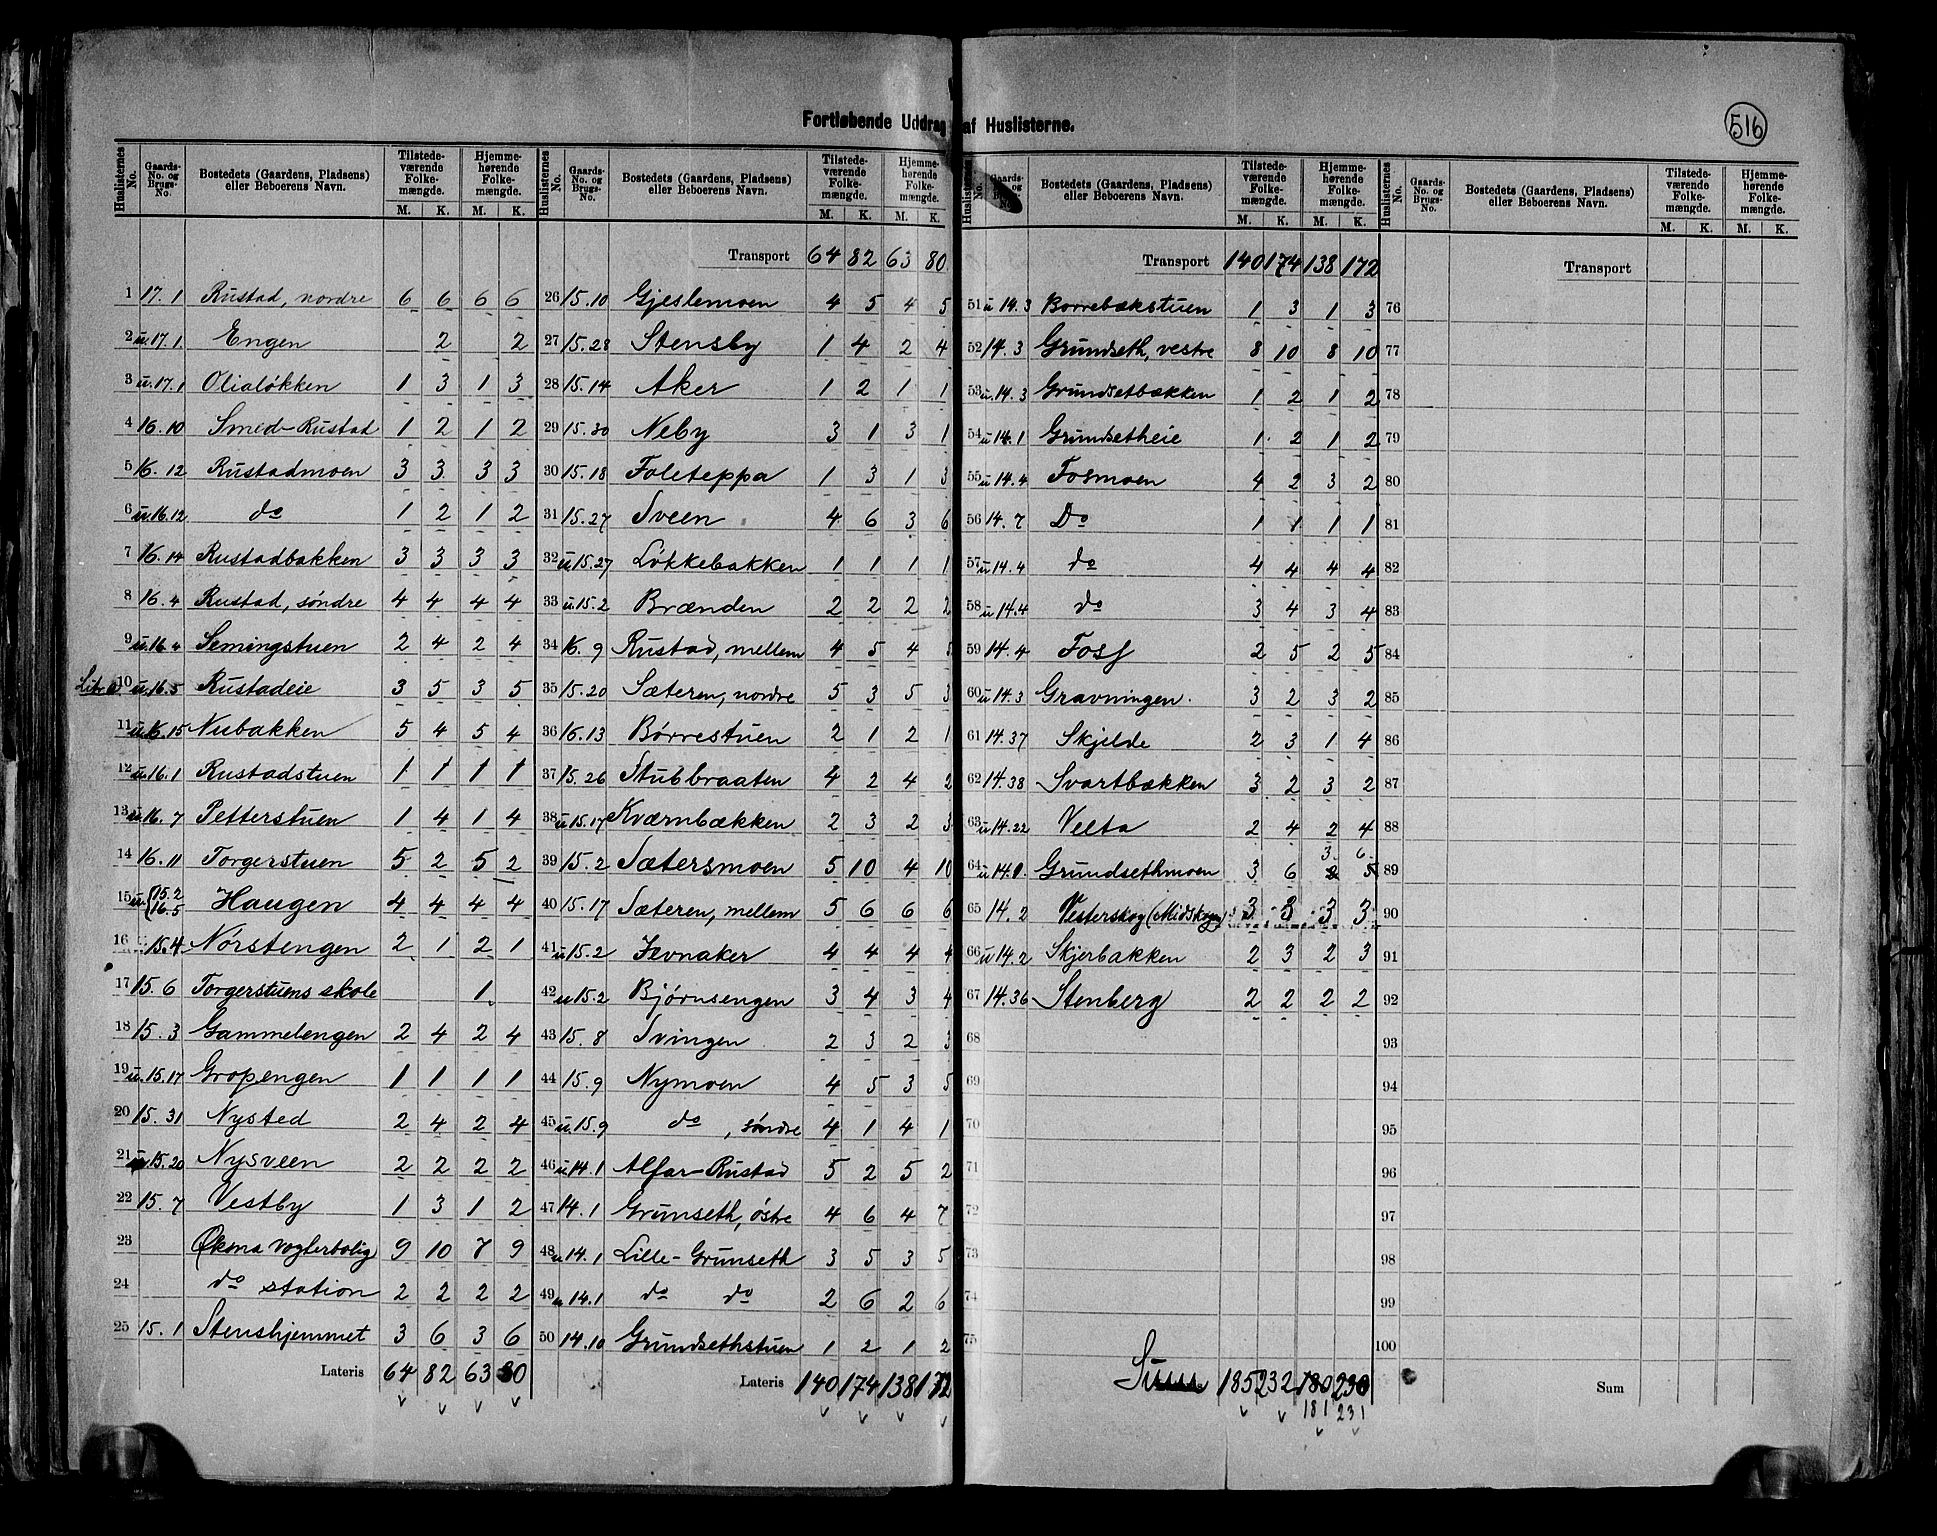 Fortløbende Uddrag af Huslisterne.
516
Huslisternes No. | Gaards-No. og Brugs-No. | Bostedets (Gaardens, Pladsens) eller Beboerens Navn. | Tilstedeværende Folkemængde. M. K. | Hjemmehørende Folkemængde. M. K.
1 17.1 Rustad, nordre 6 6 6 6
2 u.17.1 Engen 2 2
3 u.17.1 Olialøkken 1 3 1 3
4 16.10 Smed-Rustad 1 2 1 2
5 16.12 Rustadmoen 3 3 3 3
6 u.16.12 do 1 2 1 2
7 16.14 Rustadbakken 3 3 3 3
8 16.4 Rustad, søndre 4 4 4 4
9 u.16.4 Semingstuen 2 4 2 4
10 u.16.5 Rustadeie 3 5 3 5
11 u.16.15 Nubakken 5 4 5 4
12 u.16.1 Rustadstuen 1 1 1 1
13 u.16.7 Petterstuen 1 4 1 4
14 16.11 Torgerstuen 5 2 5 2
15 u. {15.2 16.5 Haugen 4 4 4 4
16 15.4 Norstengen 2 1 2 1
17 15.6 Torgerstuens skole 1
18 15.3 Gammelengen 2 4 2 4
19 u.15.17 Gropengen 1 1 1 1
20 15.31 Nysted 2 4 2 4
21 u.15.20 Nysveen 2 2 2 2
22 15.7 Vestby 1 3 1 2
23 Øksna vogterbolig 9 10 7 9
24 do station 2 2 2 2
25 15.1 Stenshjemmet 3 6 3 6
Lateris 64 82 63 80
Huslisternes No. | Gaards-No. og Brugs-No. | Bostedets (Gaardens, Pladsens) eller Beboerens Navn. | Tilstedeværende Folkemængde. M. K. | Hjemmehørende Folkemængde. M. K.
Transport 64 82 63 80
26 15.10 Gjeslemoen 4 5 4 5
27 15.28 Stensby 1 4 2 4
28 15.14 Aker 1 2 1 1
29 15.30 Neby 3 1 3 1
30 15.18 Foleteppa 1 3 1 3
31 15.27 Sveen 4 6 3 6
32 u.15.27 Løkkebakken 1 1 1 1
33 u.15.2 Brænden 2 2 2 2
34 16.9 Rustad, mellem 4 5 4 5
35 15.20 Sæteren, nordre 5 3 5 3
36 16.13 Børrestuen 2 1 2 1
37 15.26 Stubbraaten 4 2 4 2
38 u.15.17 Kværnbækken 2 3 2 3
39 15.2 Sætersmoen 5 10 4 10
40 15.17 Sæteren, mellem 5 6 6 6
41 u.15.2 Jevnaker 4 4 4 4
42 u.15.2 Bjørnsengen 3 4 3 4
43 15.8 Svingen 2 3 2 3
44 15.9 Nymoen 4 5 3 5
45 u.15.9 do, søndre 4 1 4 1
46 u.14.1 Alfar-Rustad 5 2 5 2
47 14.1 Grunseth, østre 4 6 4 7
48 u.14.1 Lille-Grunseth 3 5 3 5
49 u.14.1 do do 2 6 2 6
50 14.10 Grundsethstuen 1 2 1 2
Lateris 140 174 138 172
Huslisternes No. | Gaards-No. og Brugs-No. | Bostedets (Gaardens, Pladsens) eller Beboerens Navn. | Tilstedeværende Folkemængde. M. K. | Hjemmehørende Folkemængde. M. K.
Transport 140 174 138 172
51 u.14.3 Borrebækstuen 1 3 1 3
52 14.3 Grundseth, vestre 8 10 8 10
53 u.14.3 Grundsetbækken 1 2 1 2
54 u.14.1 Grundsetheie 1 2 1 2
55 u.14.4 Fosmoen 4 2 3 2
56 14.7 Do 1 1 1 1
57 u.14.4 do 4 4 4 4
58 u.14.4 do 3 4 3 4
59 14.4 Foss 2 5 2 5
60 u.14.3 Gravningen 3 2 3 2
61 14.37 Skjelde 2 3 1 4
62 14.38 Svartbækken 3 2 3 2
63 u.14.22 Velta 2 4 2 4
3. 6.
64 u.14.1 Grundsethmoen 3 6 2 5
65 14.2 Vesterskog (Midtskogen) 3 3 3 3
66 u.14.2 Skjerbakken 2 3 2 3
67 14.36 Stenberg 2 2 2 2
68
69
70
71
72
73
74
75
185 232 180 230
181 231
Huslisternes No. | Gaards-No. og Brugs-No. | Bostedets (Gaardens, Pladsens) eller Beboerens Navn. | Tilstedeværende Folkemængde. M. K. | Hjemmehørende Folkemængde. M. K.
Transport
76
77
78
79
80
81
82
83
84
85
86
87
88
89
90
91
92
93
94
95
96
97
98
99
100
Sum